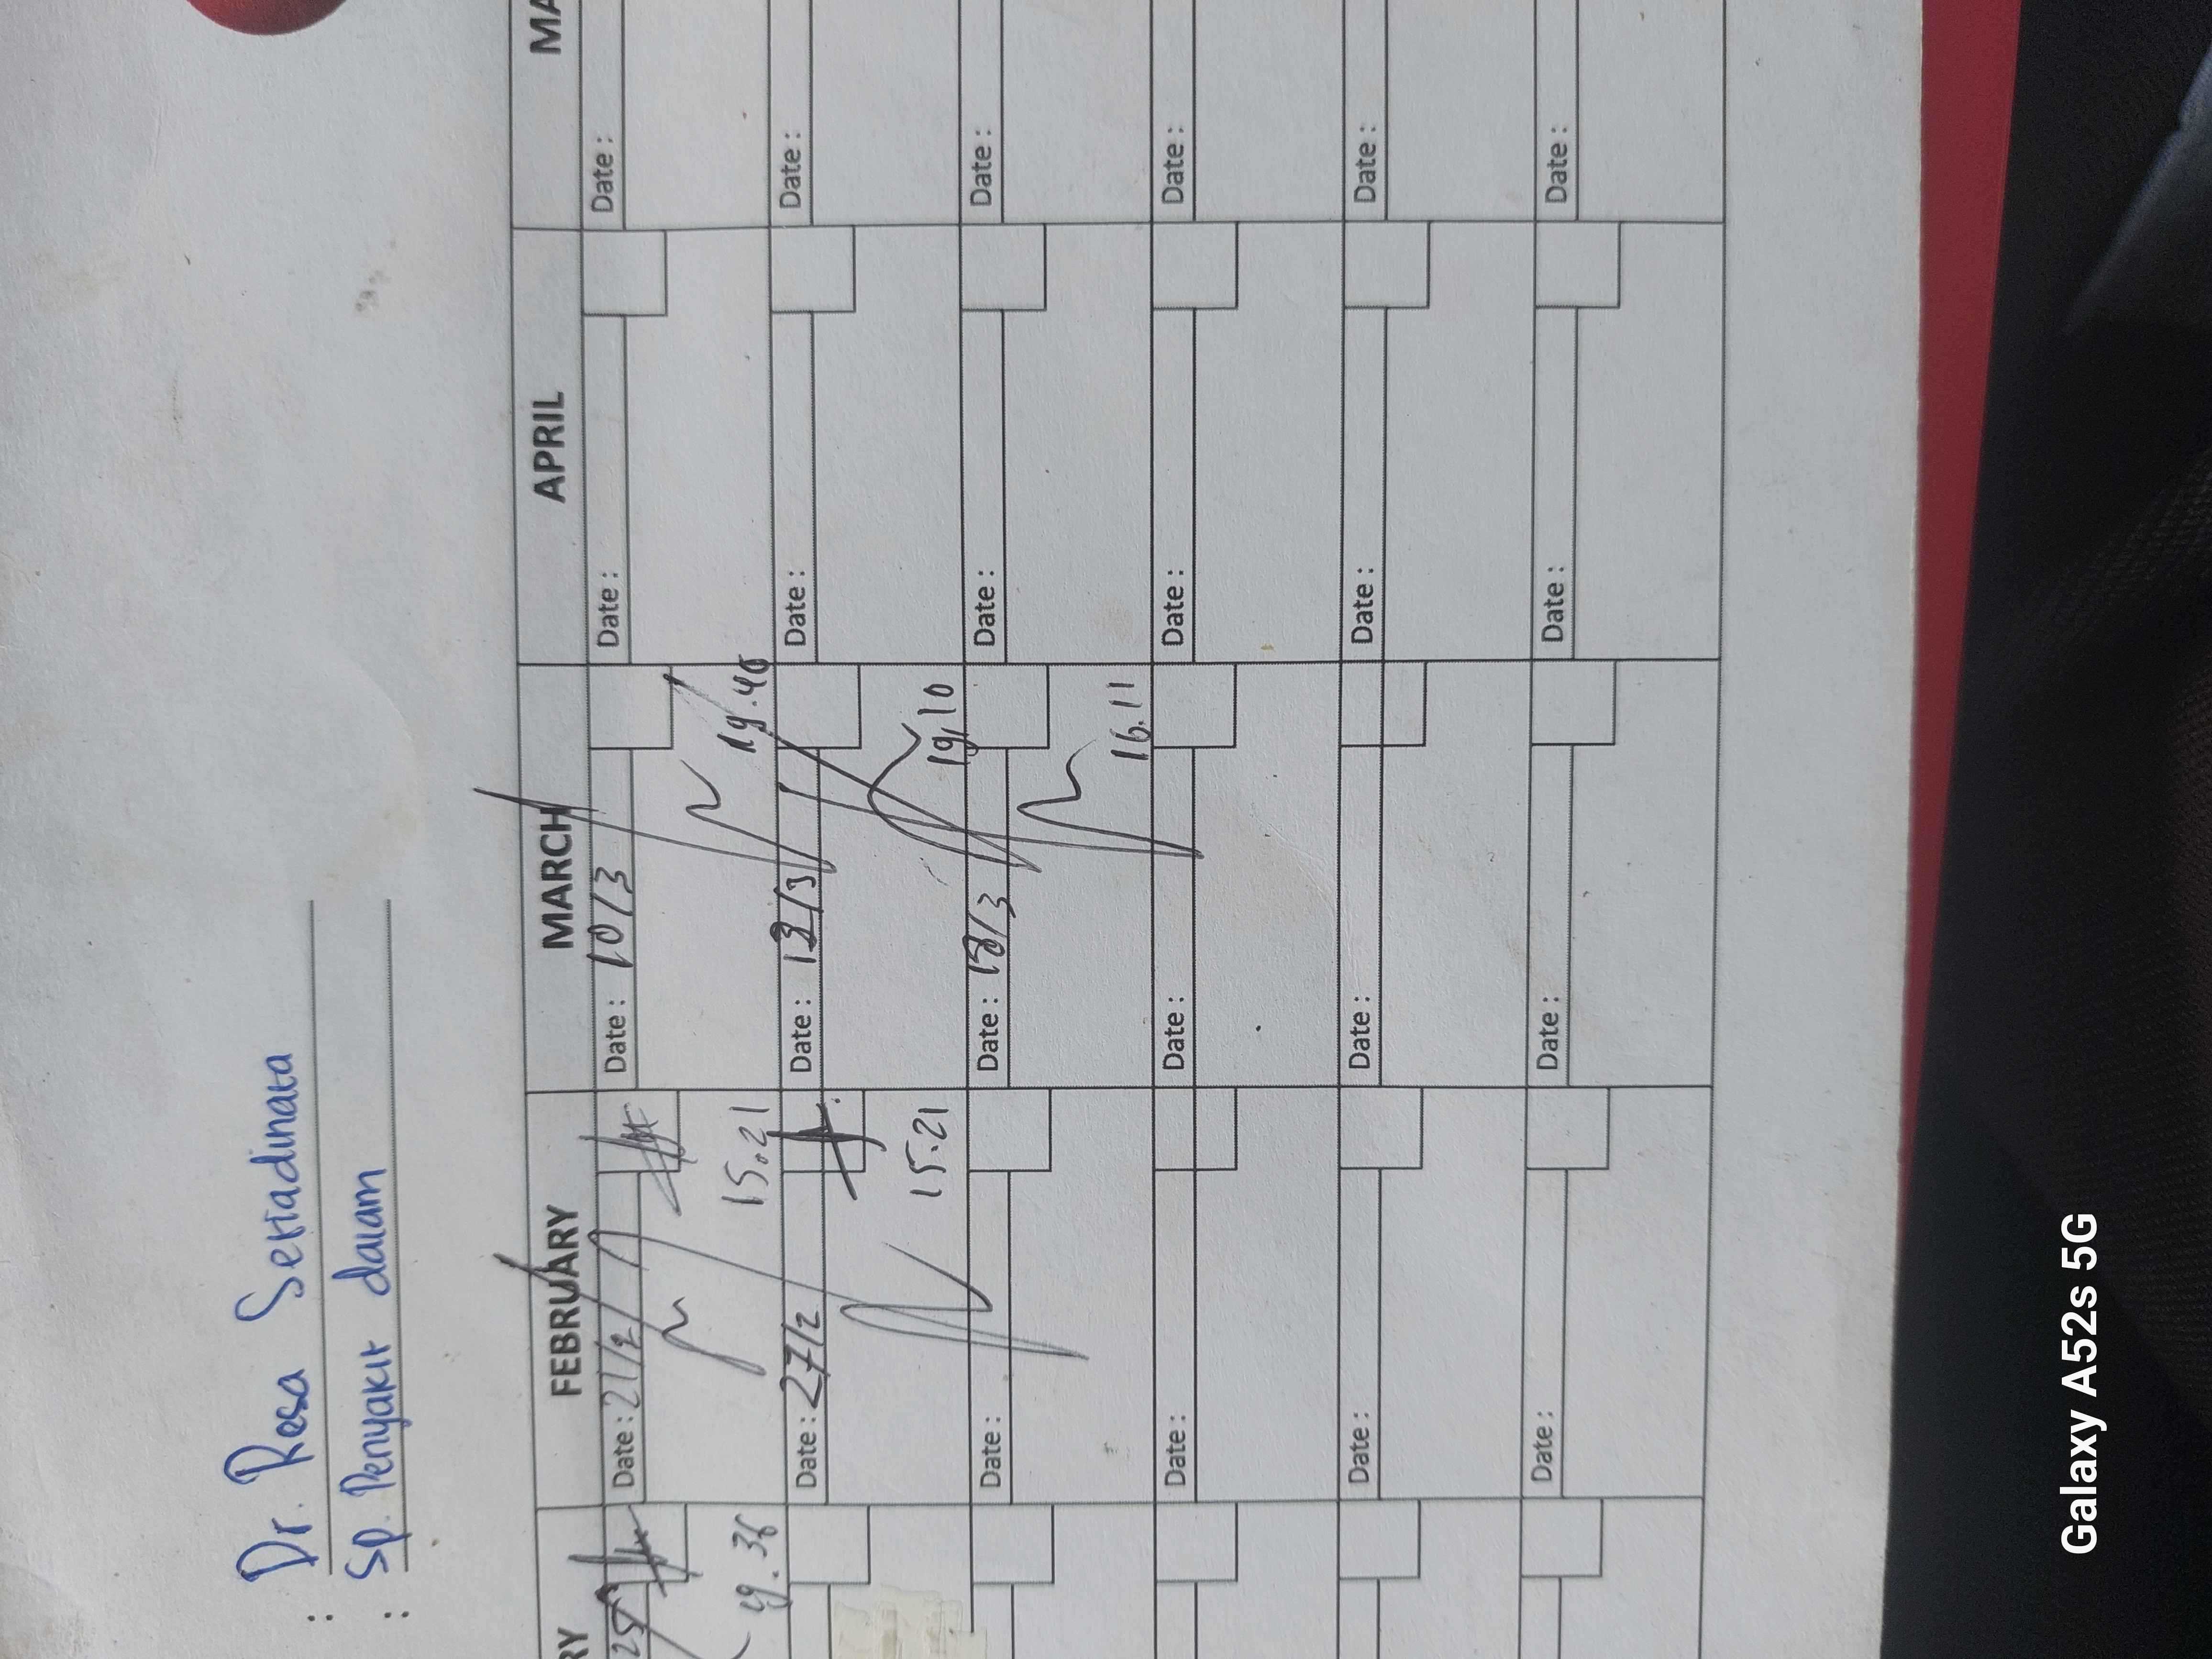 : Dr. Resa Setiadinata
: Sp. Penyakit dalam
RY FEBRUARY MARCH APRIL MA
25 Date : 21/2 Date : 10/3 Date : Date :
19.36 15.21 19.40
Date : 27/2 Date : Date : Date :
15.21 19.10
Date : Date : 18/3 Date : Date :
16.11
Date : Date : Date : Date :
Date : Date : Date : Date :
Date : Date : Date : Date :
Galaxy A52s 5G